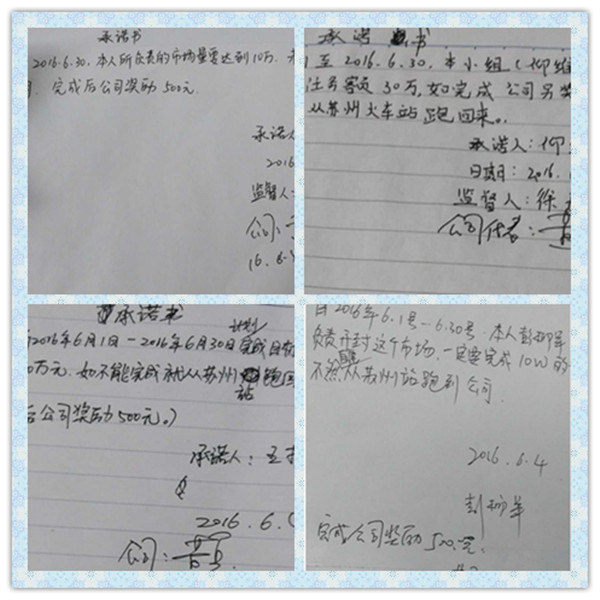 承诺书
2016.6.30,本人所负责的市场量要达到10万,
完成后公司奖励500元.
承诺人
2016
监督人
公司:
16.6.
承诺书
至2016.6.30,本小组(仰
任务额度30万,如完成公司另奖
从苏州火车站跑回来。.
承诺人:仰
日期:2016.
监督人:徐
公司代表:
承诺书
2016年6月1日-2016年6月30日计划完成目标
0万元.如不能完成就从苏州站跑回
后公司奖励500元。)
承诺人:王
2016.6.
公司:
自2016年6.1号-6.30号.本人彭柳军
负责开封这个市场.一定要完成10W的
不然从苏州站跑到公司.
2016.6.4
彭柳军
完成公司奖励500元.